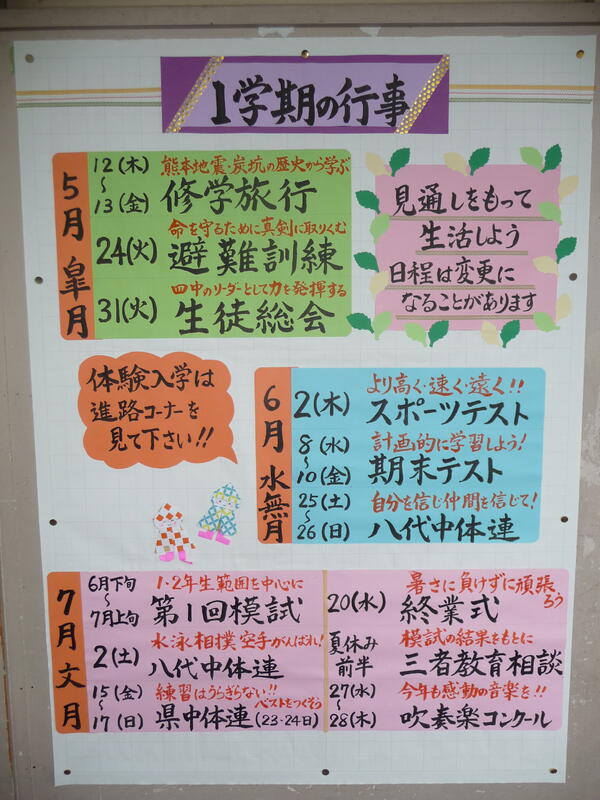 1学期の行事
5月 皐月
12(木)
～
13(金)
熊本地震・炭坑の歴史から学ぶ
修学旅行
24(火)
命を守るために真剣に取りくむ
避難訓練
31(火)
四中のリーダーとして力を発揮する
生徒総会
見通しをもって
生活しよう
日程は変更に
なることがあります
体験入学は
進路コーナーを
見て下さい!!
6月 水無月
2(木)
より高く・速く・遠く!!
スポーツテスト
8(水)
～
10(金)
計画的に学習しよう!
期末テスト
25(土)
～
26(日)
自分を信じ仲間を信じて!
八代中体連
7月 文月
6月下旬
～
7月上旬
1・2年生範囲を中心に
第1回模試
2(土)
水泳相撲空手がんばれ!
八代中体連
15(金)
～
17(日)
練習はうらぎらない!!
ベストをつくそう
県中体連(23・24日)
20(水)
暑さに負けずに頑張ろう
終業式
夏休み
前半
模試の結果をもとに
三者教育相談
27(水)
～
28(木)
今年も感動の音楽を!!
吹奏楽コンクール